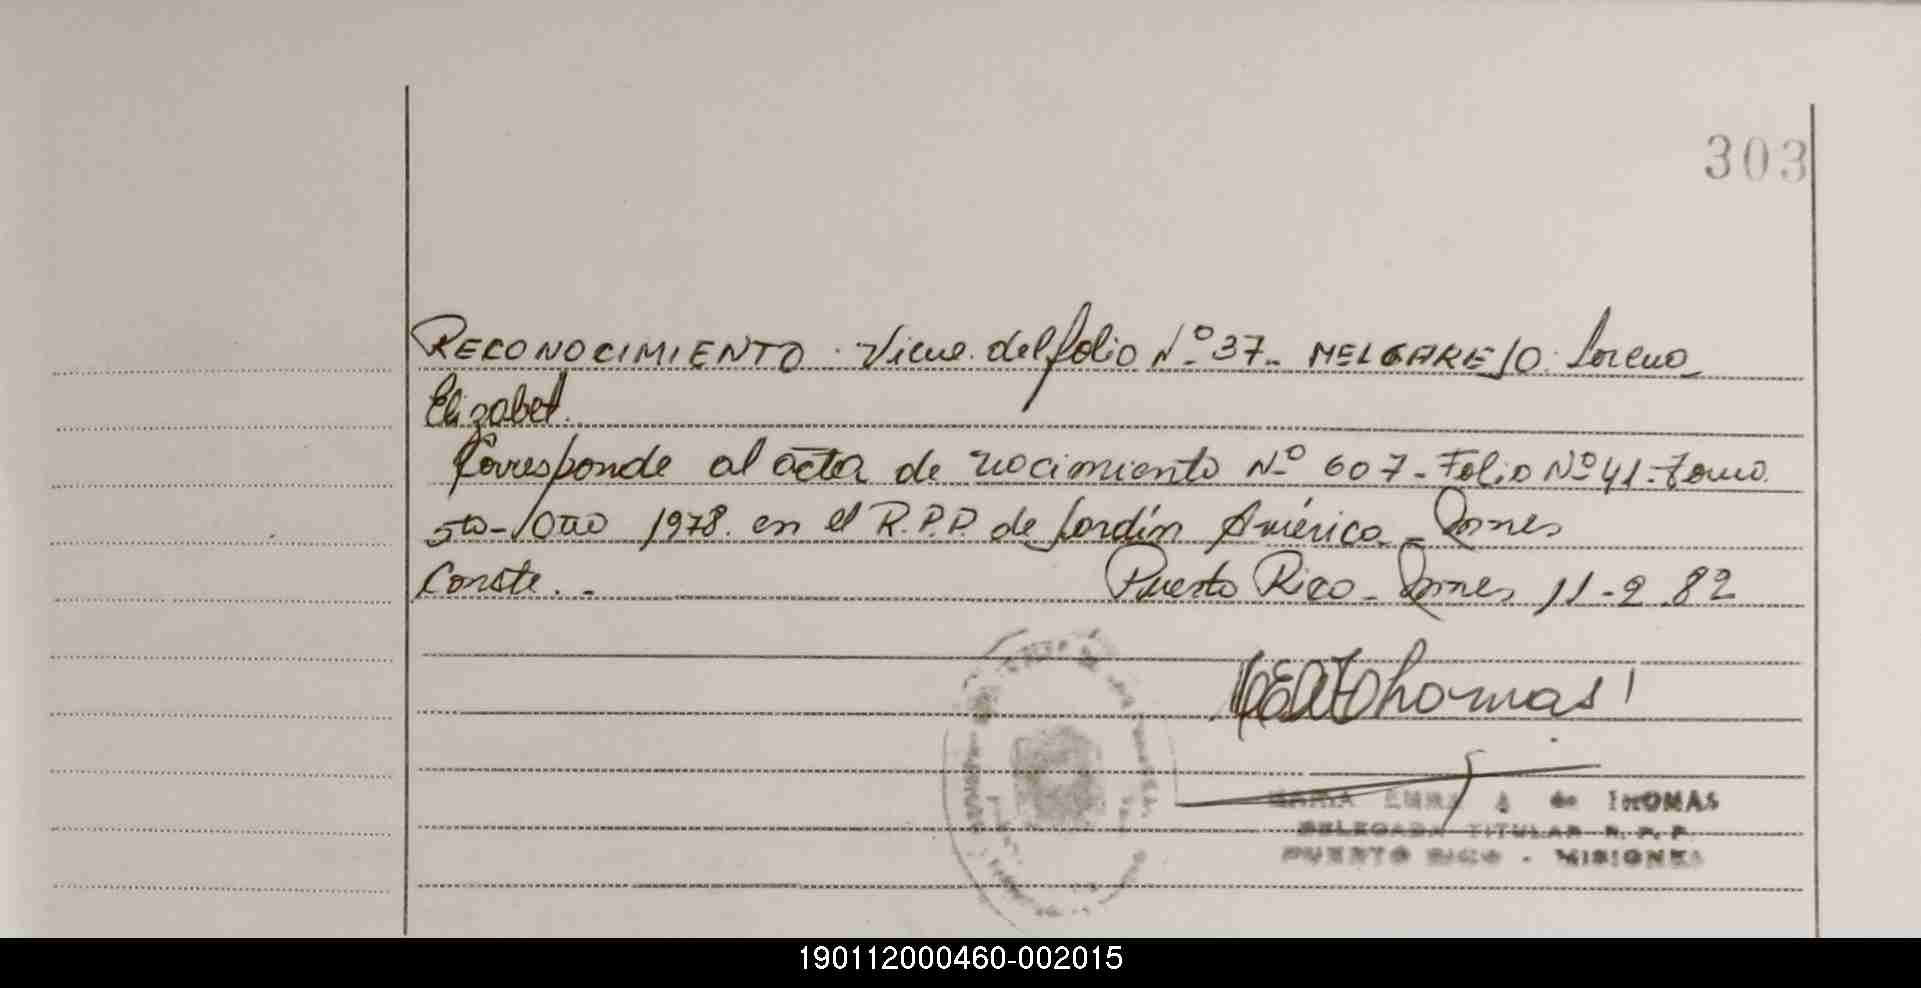 303
RECONOCIMIENTO. Viene del folio Nº 37- MELGAREJO. Lorena
Elizabet.
Corresponde al acta de nacimiento Nº 607- Folio Nº 41- Tomo
5to- Año 1978. en el R.P.P. de Jardín América- Mnes
Conste. - Puerto Rico- Mnes 11-2-82
Thomas
MARIA EMMA A de THOMAS
DELEGADA TITULAR R. P. P.
PUERTO RICO - MISIONES
190112000460-002015